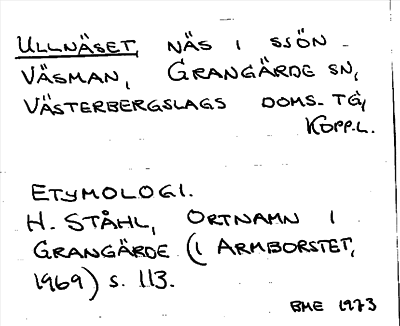 ULLNÄSET, NÄS I SJÖN
VÄSMAN, GRANGÄRDE SN,
VÄSTERBERGSLAGS DOMS. TG,
KOPP.L.
ETYMOLOGI.
H. STÅHL, ORTNAMN I
GRANGÄRDE (I ARMBORSTET,
1969) S. 113.
BME 1973